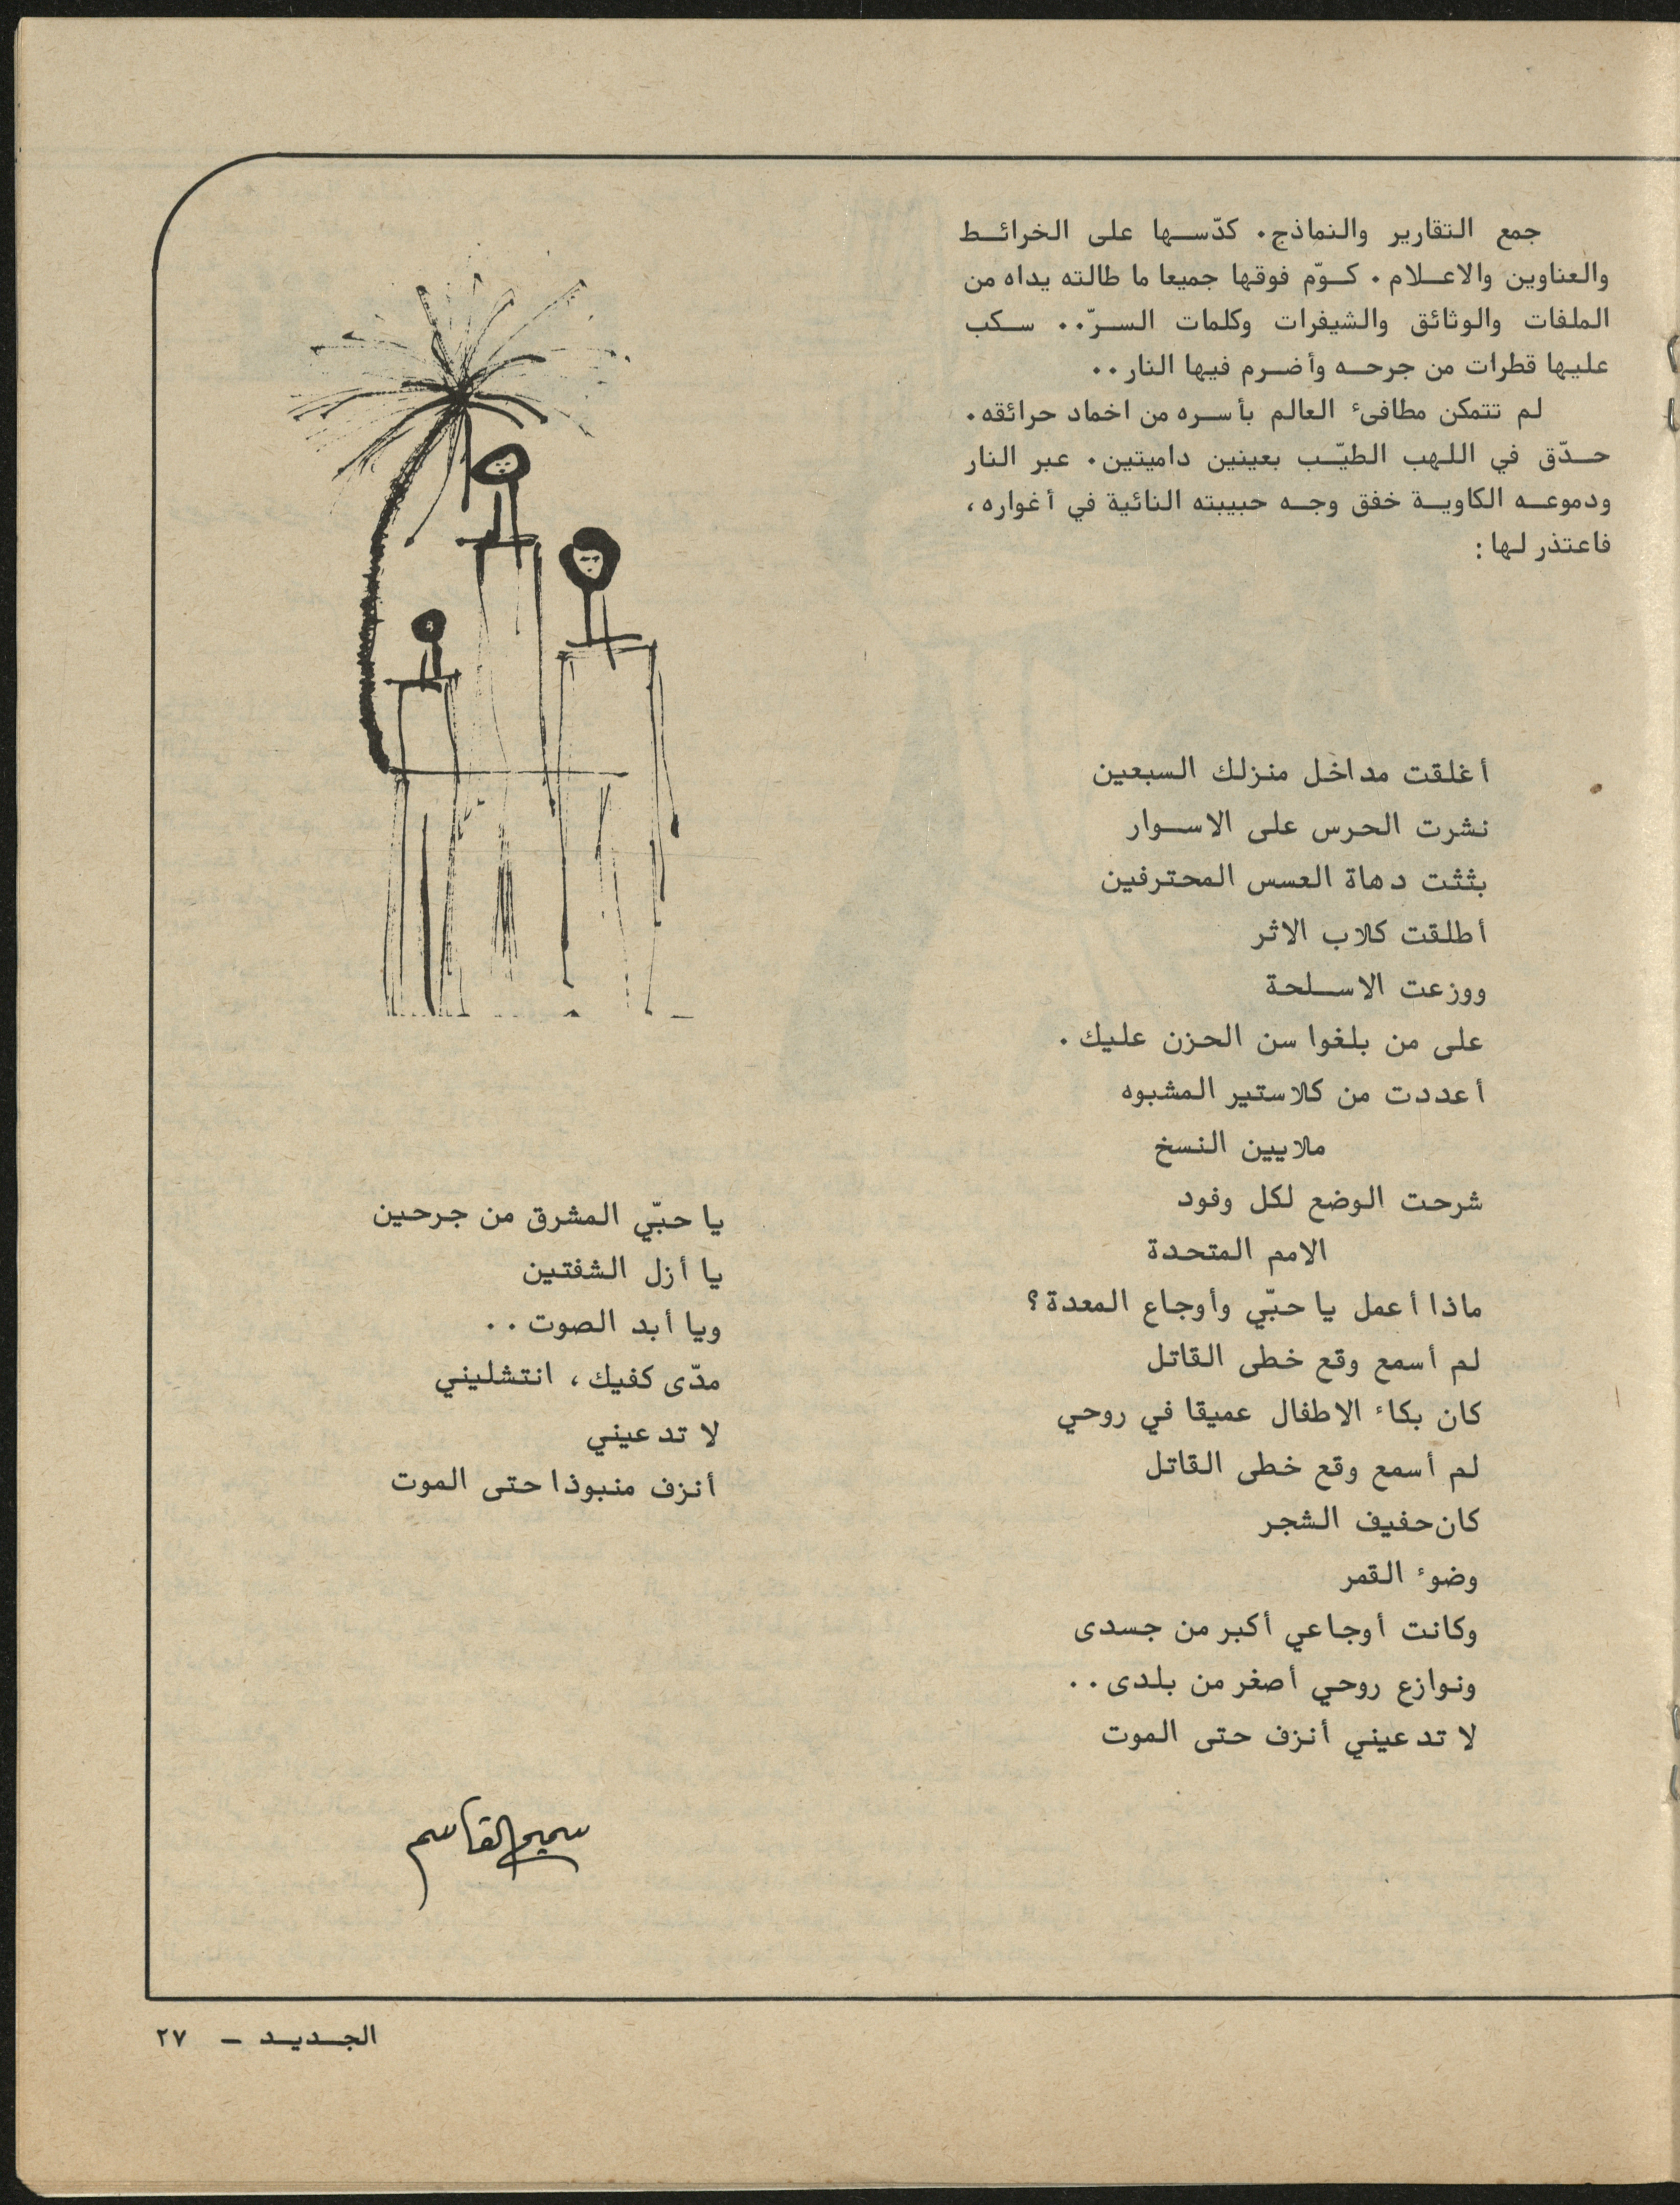 جمع التقارير والنماذج. كدّسها على الخرائط
والعناوين والاعلام. كوّم فوقها جميعا ما طالته يداه من
الملفات والوثائق والشيفرات وكلمات السرّ.. سكب
عليها قطرات من جرحه وأضرم فيها النار..
لم تتمكن مطافىء العالم بأسره من اخماد حرائقه.
حدّق في اللهب الطيّب بعينين داميتين. عبر النار
ودموعه الكاوية خفق وجه حبيبته النائية في أغواره،
فاعتذر لها:
أغلقت مداخل منزلك السبعين
نشرت الحرس على الاسوار
بثثت دهاة العسس المحترفين
أطلقت كلاب الاثر
ووزعت الاسلحة
على من بلغوا سن الحزن عليك.
أعددت من كلاستير المشبوه
ملايين النسخ
شرحت الوضع لكل وفود
الامم المتحدة
ماذا أعمل يا حبّي وأوجاع المعدة؟
لم أسمع وقع خطى القاتل
كان بكاء الاطفال عميقا في روحي
لم أسمع وقع خطى القاتل
كان حفيف الشجر
وضوء القمر
وكانت أوجاعي أكبر من جسدى
ونوازع روحي أصغر من بلدى..
لا تدعيني أنزف حتى الموت
يا حبّي المشرق من جرحين
يا أزل الشفتين
ويا أبد الصوت..
مدّى كفيك، انتشليني
لا تدعيني
أنزف منبوذا حتى الموت
سميح القاسم
الجديد – ٢٧